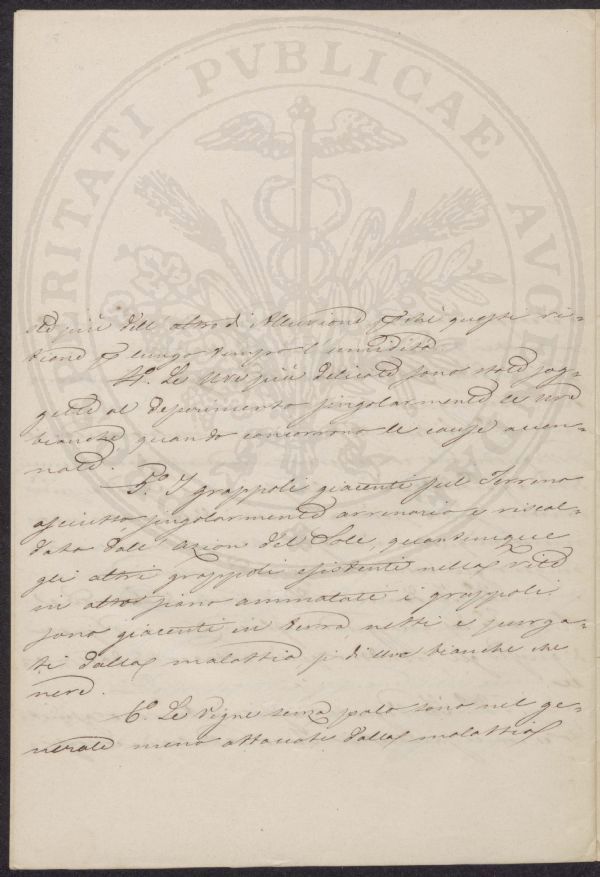 PROSPERITATI PVBLICAE AVGENDAE
te più dell'altro d'Alluvione perchè queste ri-
tiene per lungo tempo l'umidità.
4.° Le Uve più delicate sono state sog-
gette al deperimento singolarmente le uve
bianche quando concorrono le cause accen-
nate.
5.° I grappoli giacenti sul Terreno
asciutto singolarmente arrenario e riscal-
dato dall'Azion del Sole, quantunque
gli altri grappoli esistenti nella vite
in alto siano ammalati i grappoli
sono giacenti in terra netti e purga-
ti dalla malattia sì di Uve bianche che
nere.
6.° Le Vigne senza palo sono nel ge-
nerale meno attaccate dalla malattia